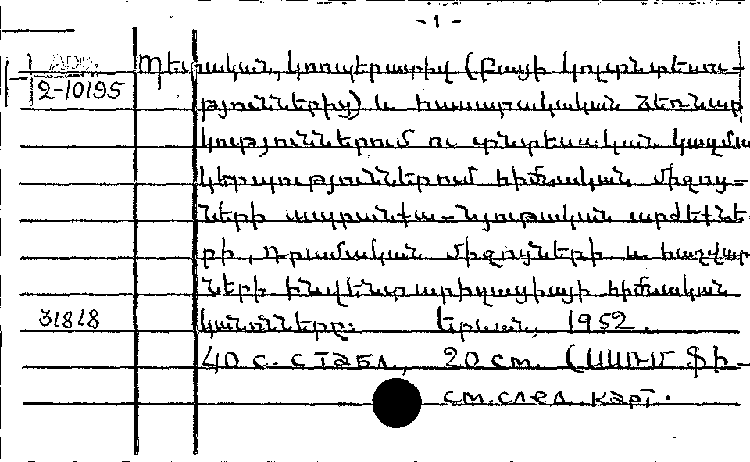 -1-
Арм.
2-10195
Պետական, կոոպերատիվ (բացի կոլտնտեսու-
թյուններից) և հասարակական ձեռնար
կություններում ու տնտեսական կազմա
կերպություններում հիմնական միջոց-
ների ապրանքա-նյութական արժեքնե-
րի, դրամական միջոցների և հաշվար
ների ինվենտարիզացիայի հիմնական
31818
կանոնները: Երևան, 1952.
40 с. с табл., 20 см. (ՍՍՌՄ Ֆի-
см.след. карт.